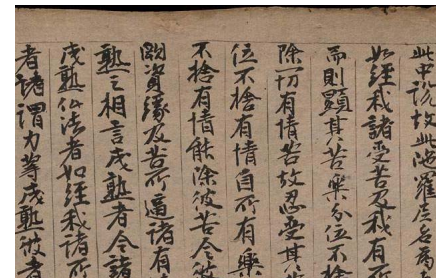 此中說故此陁羅尼名為
如經我諸受苦及我有所
而則顯其苦樂分位不捨
除一切有情苦故忍受其
位不捨有情自所有樂
不捨有情能除彼苦令彼
闕資緣及苦所逼諸有
熟之相言成熟者令諸
成熟仏法者如經我諸所
者諸謂力等成熟彼者